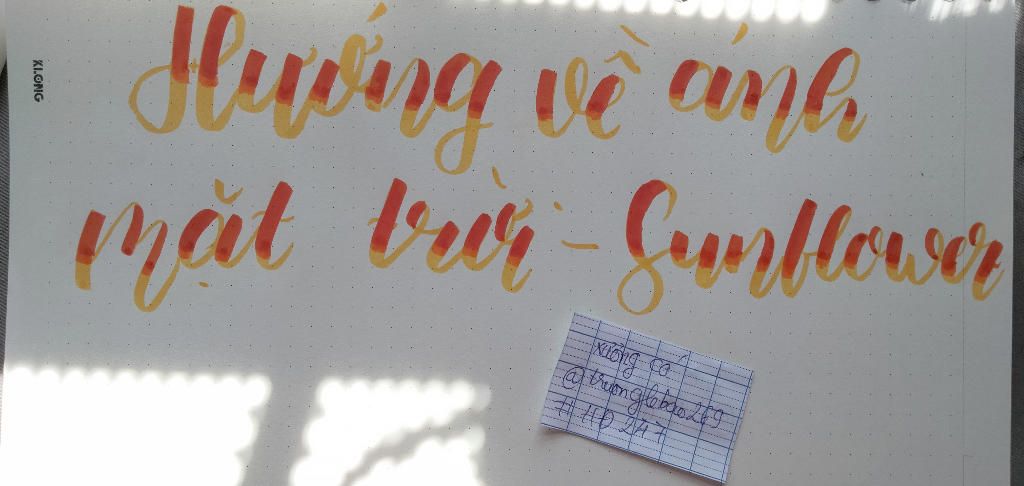 KLONG
Hướng về ánh
mặt trời - Sunflower
xưởng cá
@truonglebao269
# HĐ 247